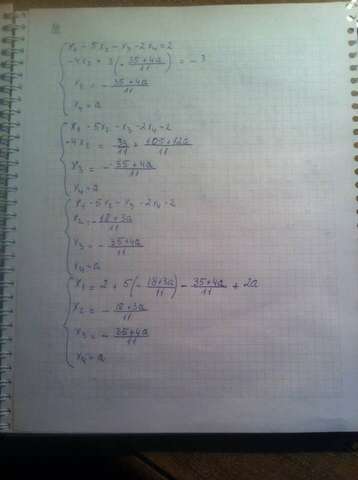 x₁ - 5x₂ - x₃ - 2x₄ = 2
-4x₂ + 3(-\frac{35+4a}{11}) = -3
x₃ = -\frac{35+4a}{11}
x₄ = a
x₁ - 5x₂ - x₃ - 2x₄ = 2
-4x₂ = -\frac{33}{11} + \frac{105+12a}{11}
x₃ = -\frac{35+4a}{11}
x₄ = a
x₁ - 5x₂ - x₃ - 2x₄ = 2
x₂ = -\frac{18+3a}{11}
x₃ = -\frac{35+4a}{11}
x₄ = a
x₁ = 2 + 5(-\frac{18+3a}{11}) - \frac{35+4a}{11} + 2a
x₂ = -\frac{18+3a}{11}
x₃ = -\frac{35+4a}{11}
x₄ = a